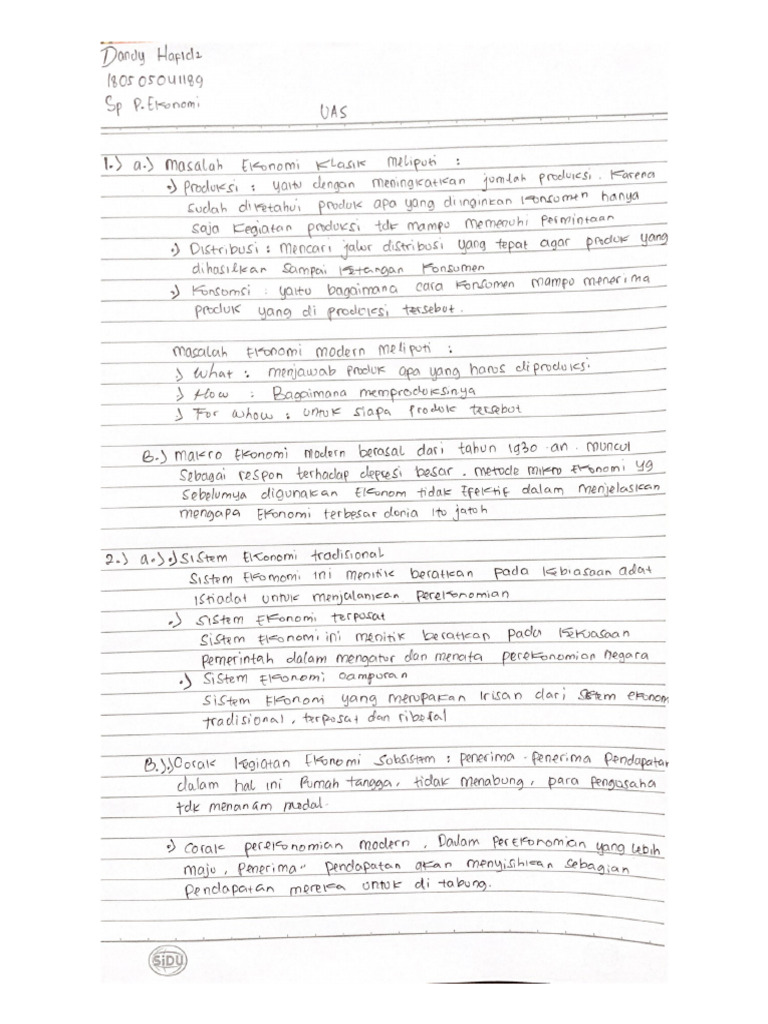 Dandy Hafidz
180505041189
Sp P. Ekonomi
UAS
1.) a.) Masalah Ekonomi Klasik Meliputi :
•) Produksi : yaitu dengan meningkatkan jumlah produksi. Karena
sudah diketahui produk apa yang diinginkan konsumen hanya
saja kegiatan produksi tdk mampu memenuhi permintaan
•) Distribusi : mencari jalur distribusi yang tepat agar produk yang
dihasilkan sampai ketangan konsumen
•) Konsumsi : yaitu bagaimana cara konsumen mampu menerima
produk yang di produksi tersebut.
Masalah Ekonomi modern meliputi :
•) What : menjawab produk apa yang harus diproduksi.
•) How : Bagaimana memproduksinya
•) For whow : untuk siapa produk tersebut
B.) Makro Ekonomi Modern berasal dari tahun 1930-an. Muncul
sebagai respon terhadap depresi besar. metode mikro Ekonomi yg
sebelumya digunakan Ekonom tidak Efektif dalam menjelaskan
mengapa Ekonomi terbesar dunia itu jatuh
2.) a.) •) Sistem Ekonomi tradisional
Sistem Ekomomi ini menitik beratkan pada kebiasaan adat
istiadat untuk menjalankan perekonomian
•) Sistem Ekonomi terpusat
Sistem Ekonomi ini menitik beratkan pada kekuasaan
pemerintah dalam mengatur dan menata perekonomian negara
•) Sistem Ekonomi Campuran
Sistem Ekonomi yang merupakan irisan dari Sistem ekonom
tradisional, terpusat dan riberal
B.) •) Corak kegiatan Ekonomi Subsistem : penerima-penerima pendapatan
dalam hal ini Rumah tangga, tidak menabung, para pengusaha
tdk menanam modal.
•) Corak perekonomian modern, Dalam perekonomian yang lebih
maju, penerima" pendapatan akan menyisihkan sebagian
pendapatan mereka untuk di tabung.
SiDU